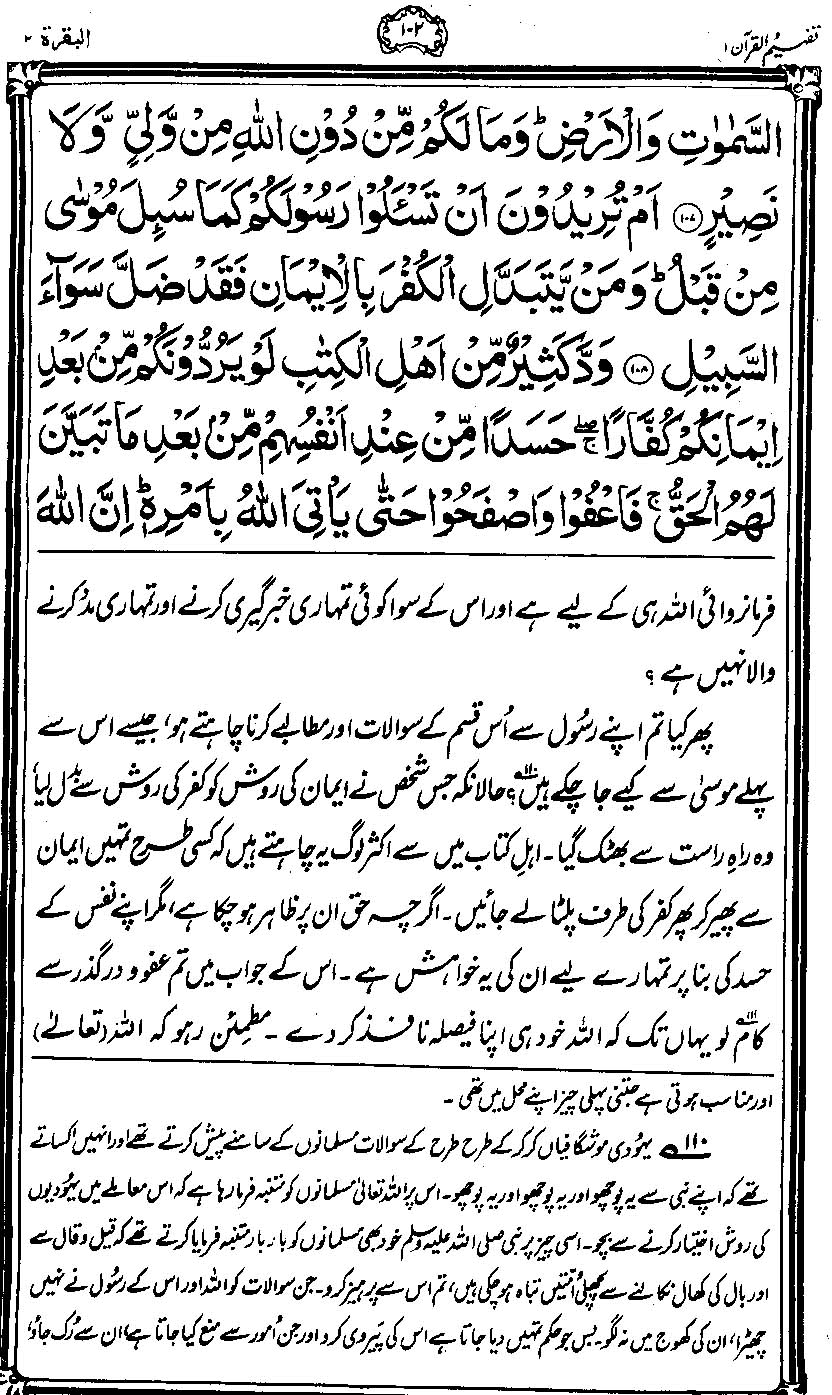 تفہیم القرآن ۱
۱۰۲
البقرة ۲
السَّمٰوٰتِ وَالْاَرْضِ ؕ وَمَا لَكُمْ مِّنْ دُوْنِ اللّٰهِ مِنْ وَّلِيٍّ وَّلَا
نَصِيْرٍ ۝۱۰۷ اَمْ تُرِيْدُوْنَ اَنْ تَسْـَٔلُوْا رَسُوْلَكُمْ كَمَا سُىِٕلَ مُوْسٰى
مِنْ قَبْلُ ؕ وَمَنْ يَّتَبَدَّلِ الْكُفْرَ بِالْاِيْمَانِ فَقَدْ ضَلَّ سَوَآءَ
السَّبِيْلِ ۝۱۰۸ وَدَّ كَثِيْرٌ مِّنْ اَهْلِ الْكِتٰبِ لَوْ يَرُدُّوْنَكُمْ مِّنْ بَعْدِ
اِيْمَانِكُمْ كُفَّارًا ۖۚ حَسَدًا مِّنْ عِنْدِ اَنْفُسِهِمْ مِّنْ بَعْدِ مَا تَبَيَّنَ
لَهُمُ الْحَقُّ ۚ فَاعْفُوْا وَاصْفَحُوْا حَتّٰى يَاْتِيَ اللّٰهُ بِاَمْرِهٖ ؕ اِنَّ اللّٰهَ
فرمانروائی اللہ ہی کے لیے ہے اور اس کے سوا کوئی تمہاری خبرگیری کرنے اور تمہاری مدد کرنے
والا نہیں ہے ؟
پھر کیا تم اپنے رسُول سے اُس قسم کے سوالات اور مطالبے کرنا چاہتے ہو، جیسے اس سے
پہلے موسیٰ سے کیے جا چکے ہیں؟۱۱۰ حالانکہ جس شخص نے ایمان کی روش کو کفر کی روش سے بدل لیا
وہ راہِ راست سے بھٹک گیا۔ اہلِ کتاب میں سے اکثر لوگ یہ چاہتے ہیں کہ کسی طرح تمہیں ایمان
سے پھیر کر پھر کفر کی طرف پلٹا لے جائیں۔ اگرچہ حق ان پر ظاہر ہو چکا ہے، مگر اپنے نفس کے
حسد کی بنا پر تمہارے لیے ان کی یہ خواہش ہے۔ اس کے جواب میں تم عفو و درگذر سے
کام۱۱۱ لو یہاں تک کہ اللہ خود ہی اپنا فیصلہ نافذ کر دے۔ مطمئن رہو کہ اللہ (تعالےٰ)
اور مناسب ہوتی ہے جتنی پہلی چیز اپنے محل میں تھی۔
۱۱۰ یہُودی موشگافیاں کر کر کے طرح طرح کے سوالات مسلمانوں کے سامنے پیش کرتے تھے اور انہیں اکساتے
تھے کہ اپنے نبی سے یہ پوچھو اور یہ پوچھو اور یہ پوچھو۔ اس پر اللہ تعالیٰ مسلمانوں کو متنبہ فرما رہا ہے کہ اس معاملے میں یہُودیوں
کی روش اختیار کرنے سے بچو۔ اسی چیز پر نبی صلی اللہ علیہ وسلم خود بھی مسلمانوں کو بار بار متنبہ فرمایا کرتے تھے کہ قیل و قال سے
اور بال کی کھال نکالنے سے پچھلی اُمتیں تباہ ہو چکی ہیں، تم اس سے پرہیز کرو۔ جن سوالات کو اللہ اور اس کے رسُول نے نہیں
چھیڑا، ان کی کھوج میں نہ لگو۔ بس جو حکم تمہیں دیا جاتا ہے اس کی پیروی کرو اور جن اُمور سے منع کیا جاتا ہے ان سے رُک جاؤ،